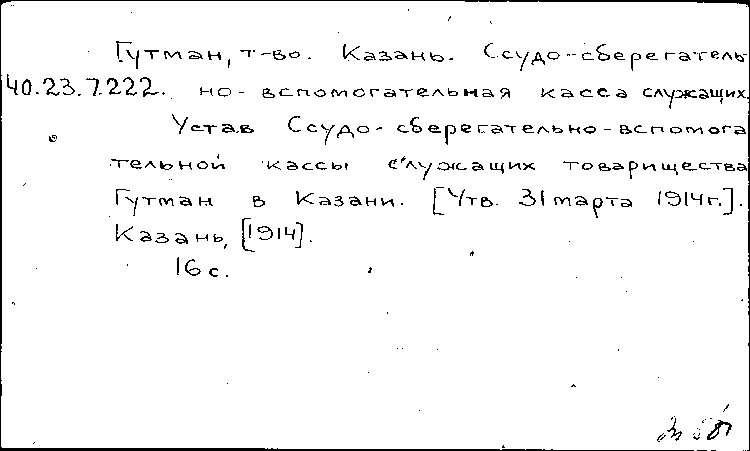 Гутман, т-во. Казань. Ссудо-сберегатель
40.23.7.222. но-вспомогательная касса служащих.
Устав Ссудо-сберегательно-вспомога
тельной кассы служащих товарищества
Гутман в Казани. [Утв. 31 марта 1914 г.].
Казань, [1914].
16 с.